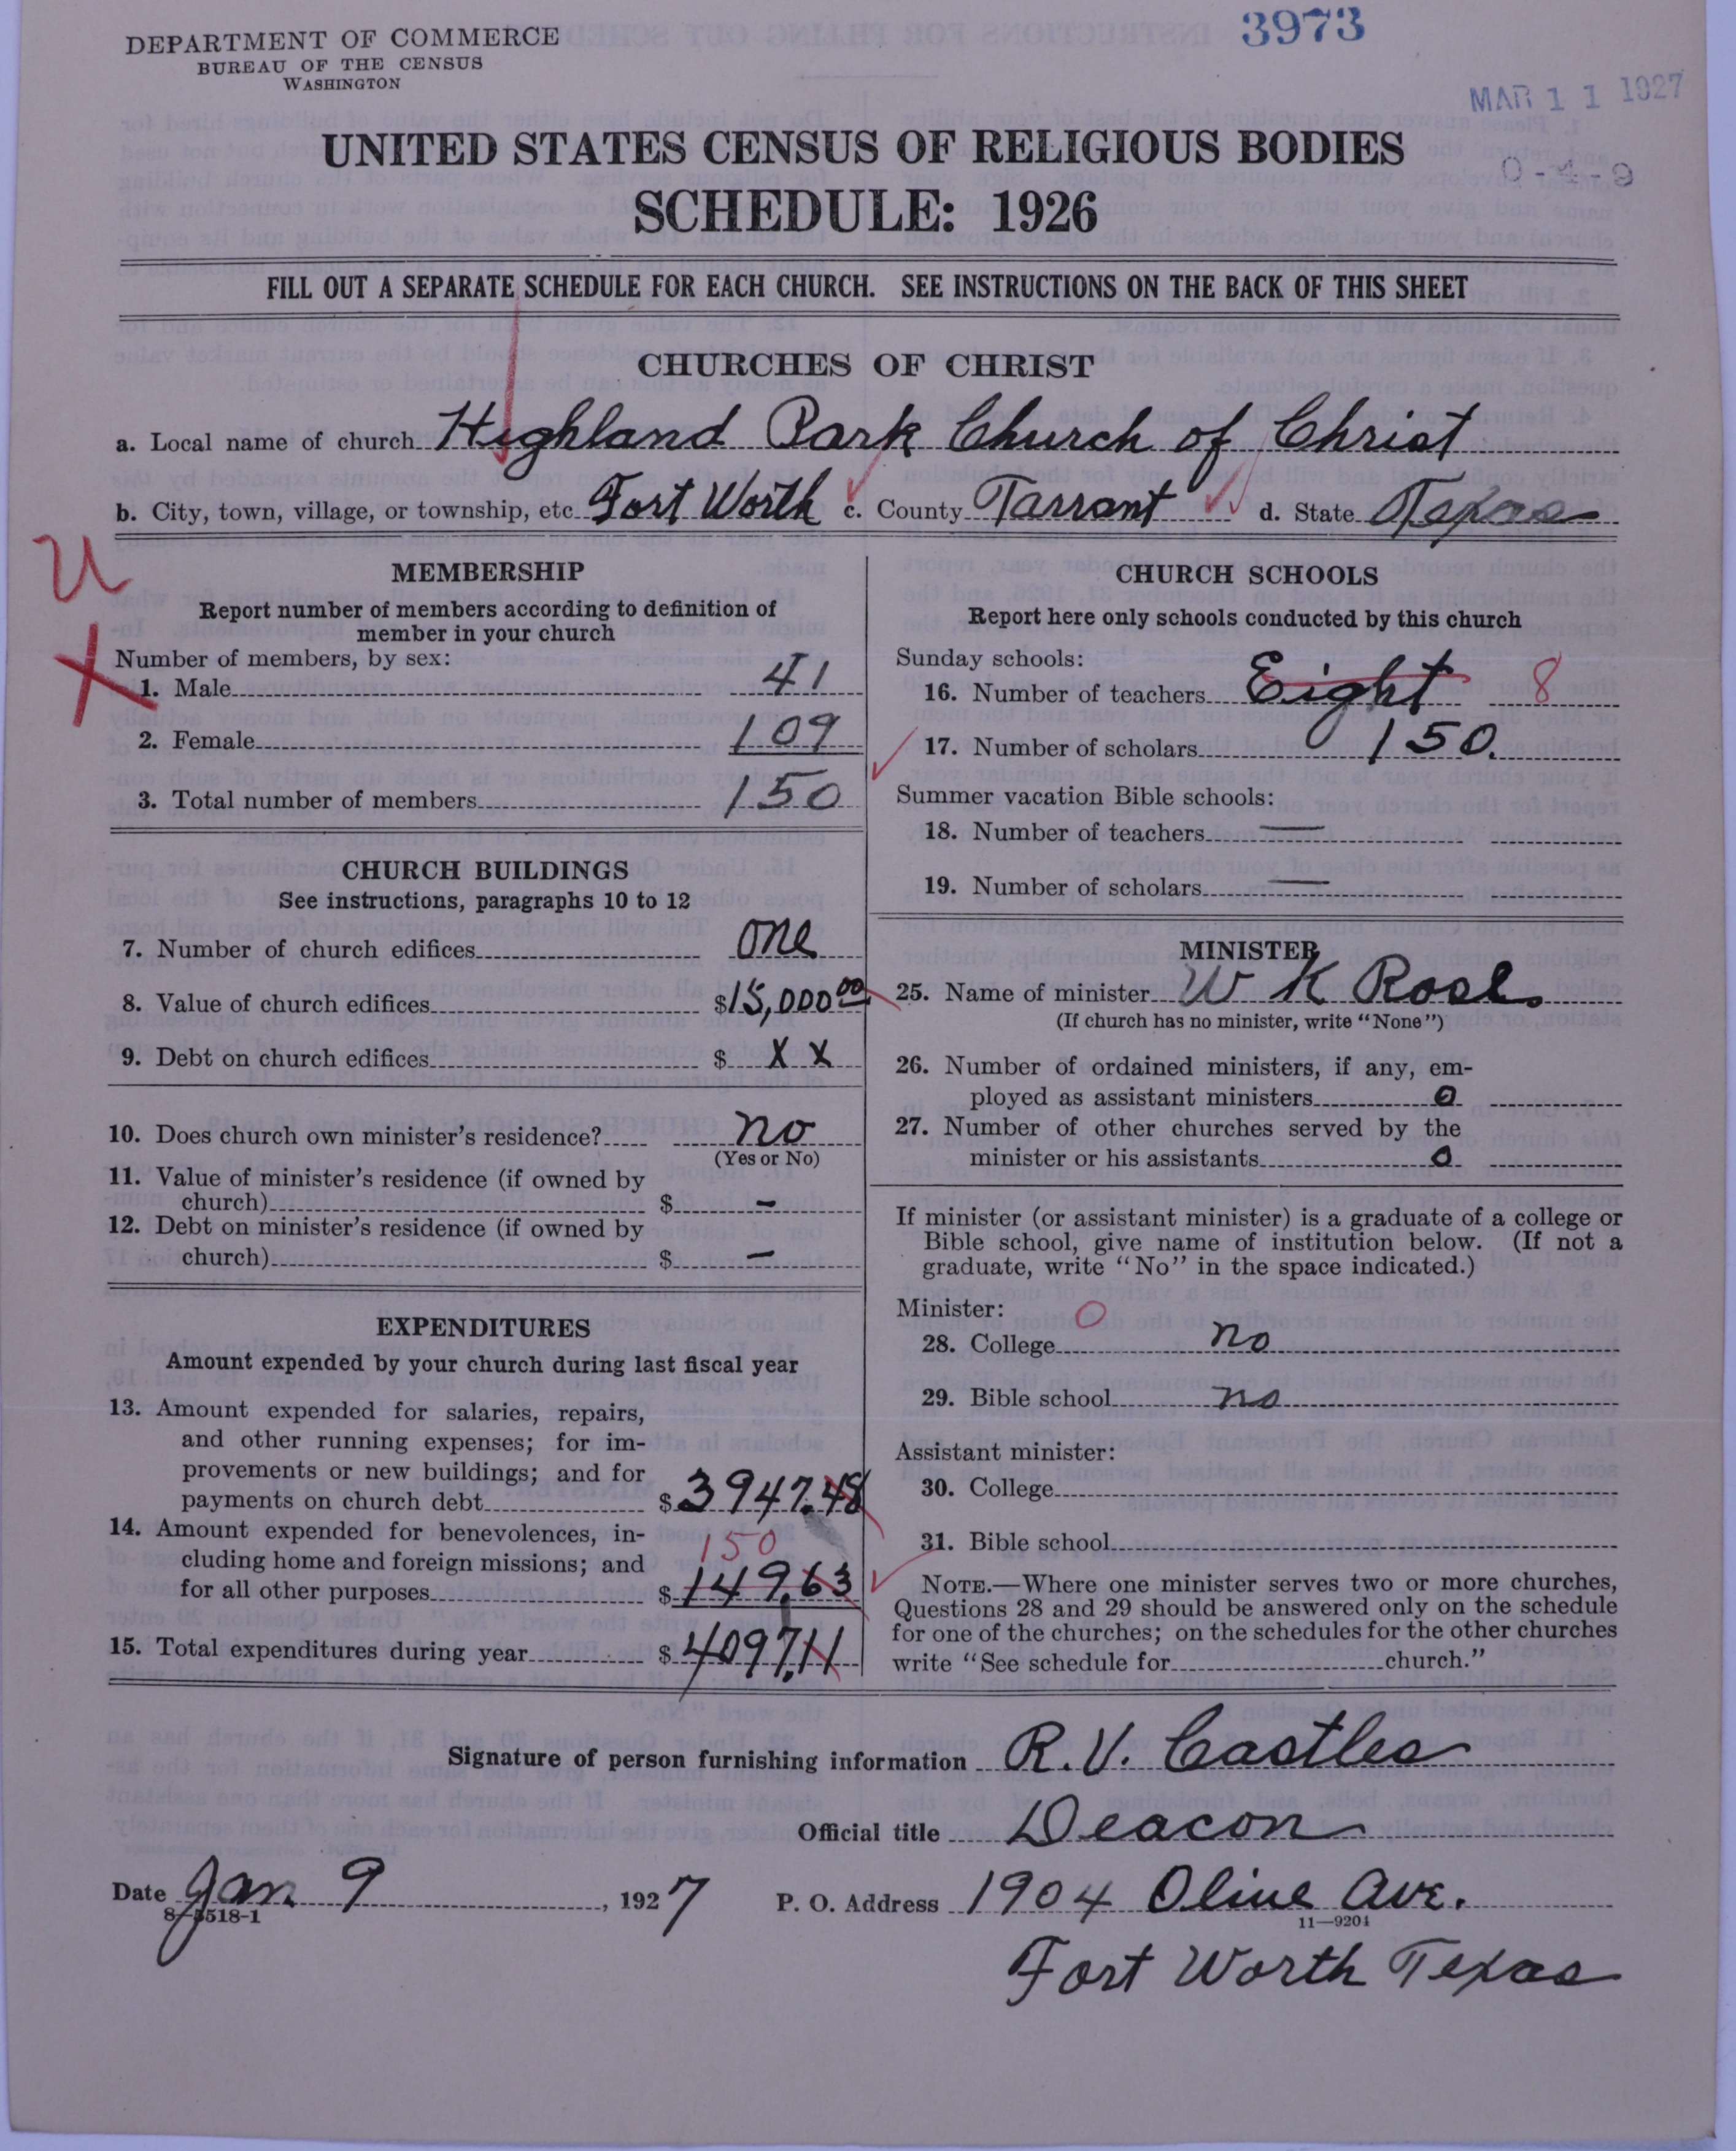 3973
DEPARTMENT OF COMMERCE
BUREAU OF THE CENSUS
WASHINGTON
MAR 11 1927
0-4-9
UNITED STATES CENSUS OF RELIGIOUS BODIES
SCHEDULE: 1926
FILL OUT A SEPARATE SCHEDULE FOR EACH CHURCH. SEE INSTRUCTIONS ON THE BACK OF THIS SHEET
CHURCHES OF CHRIST
a. Local name of church Highland Park Church of Christ
b. City, town, village, or township, etc. Fort Worth c. County Tarrant d. State Texas
U
X
MEMBERSHIP
Report number of members according to definition of
member in your church
Number of members, by sex:
1. Male 41
2. Female 109
3. Total number of members 150
CHURCH BUILDINGS
See instructions, paragraphs 10 to 12
7. Number of church edifices one
8. Value of church edifices $15,000 00
9. Debt on church edifices $ X X
10. Does church own minister's residence? no
(Yes or No)
11. Value of minister's residence (if owned by
church) $ –
12. Debt on minister's residence (if owned by
church) $ –
EXPENDITURES
Amount expended by your church during last fiscal year
13. Amount expended for salaries, repairs,
and other running expenses; for im-
provements or new buildings; and for
payments on church debt $ 3947.48
14. Amount expended for benevolences, in-
150
cluding home and foreign missions; and
for all other purposes $ 149.63
15. Total expenditures during year $ 4097.11
CHURCH SCHOOLS
Report here only schools conducted by this church
Sunday schools:
16. Number of teachers Eight 8
17. Number of scholars 150.
Summer vacation Bible schools:
18. Number of teachers —
19. Number of scholars —
MINISTER
25. Name of minister W K Rose.
(If church has no minister, write "None")
26. Number of ordained ministers, if any, em-
ployed as assistant ministers 0
27. Number of other churches served by the
minister or his assistants 0
If minister (or assistant minister) is a graduate of a college or
Bible school, give name of institution below. (If not a
graduate, write "No" in the space indicated.)
Minister: 0
28. College no
29. Bible school no
Assistant minister:
30. College
31. Bible school
NOTE.—Where one minister serves two or more churches,
Questions 28 and 29 should be answered only on the schedule
for one of the churches; on the schedules for the other churches
write "See schedule for church."
Signature of person furnishing information R.V. Castles
Official title Deacon
Date Jan 9, 1927 P. O. Address 1904 Olive Ave.
8-5518-1 11—9204
Fort Worth Texas